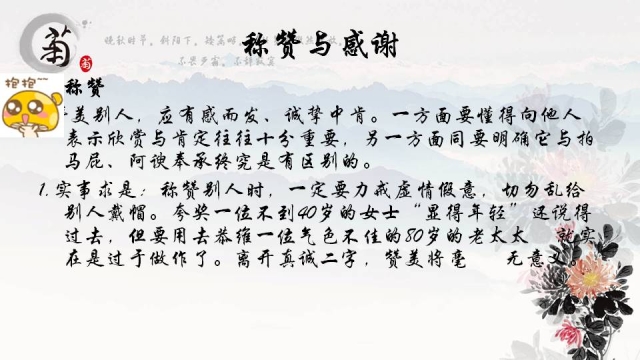 菊
晚秋时节。斜阳下。
称赞与感谢
抱抱~~
称赞
美别人，应有感而发、诚挚中肯。一方面要懂得向他人
表示欣赏与肯定往往十分重要，另一方面同要明确它与拍
马屁、阿谀奉承终究是有区别的。
1. 实事求是：称赞别人时，一定要力戒虚情假意，切勿乱给
别人戴帽。夸奖一位不到40岁的女士“显得年轻”还说得
过去，但要用去恭维一位气色不佳的80岁的老太太 就实
在是过于做作了。离开真诚二字，赞美将毫 无意义。